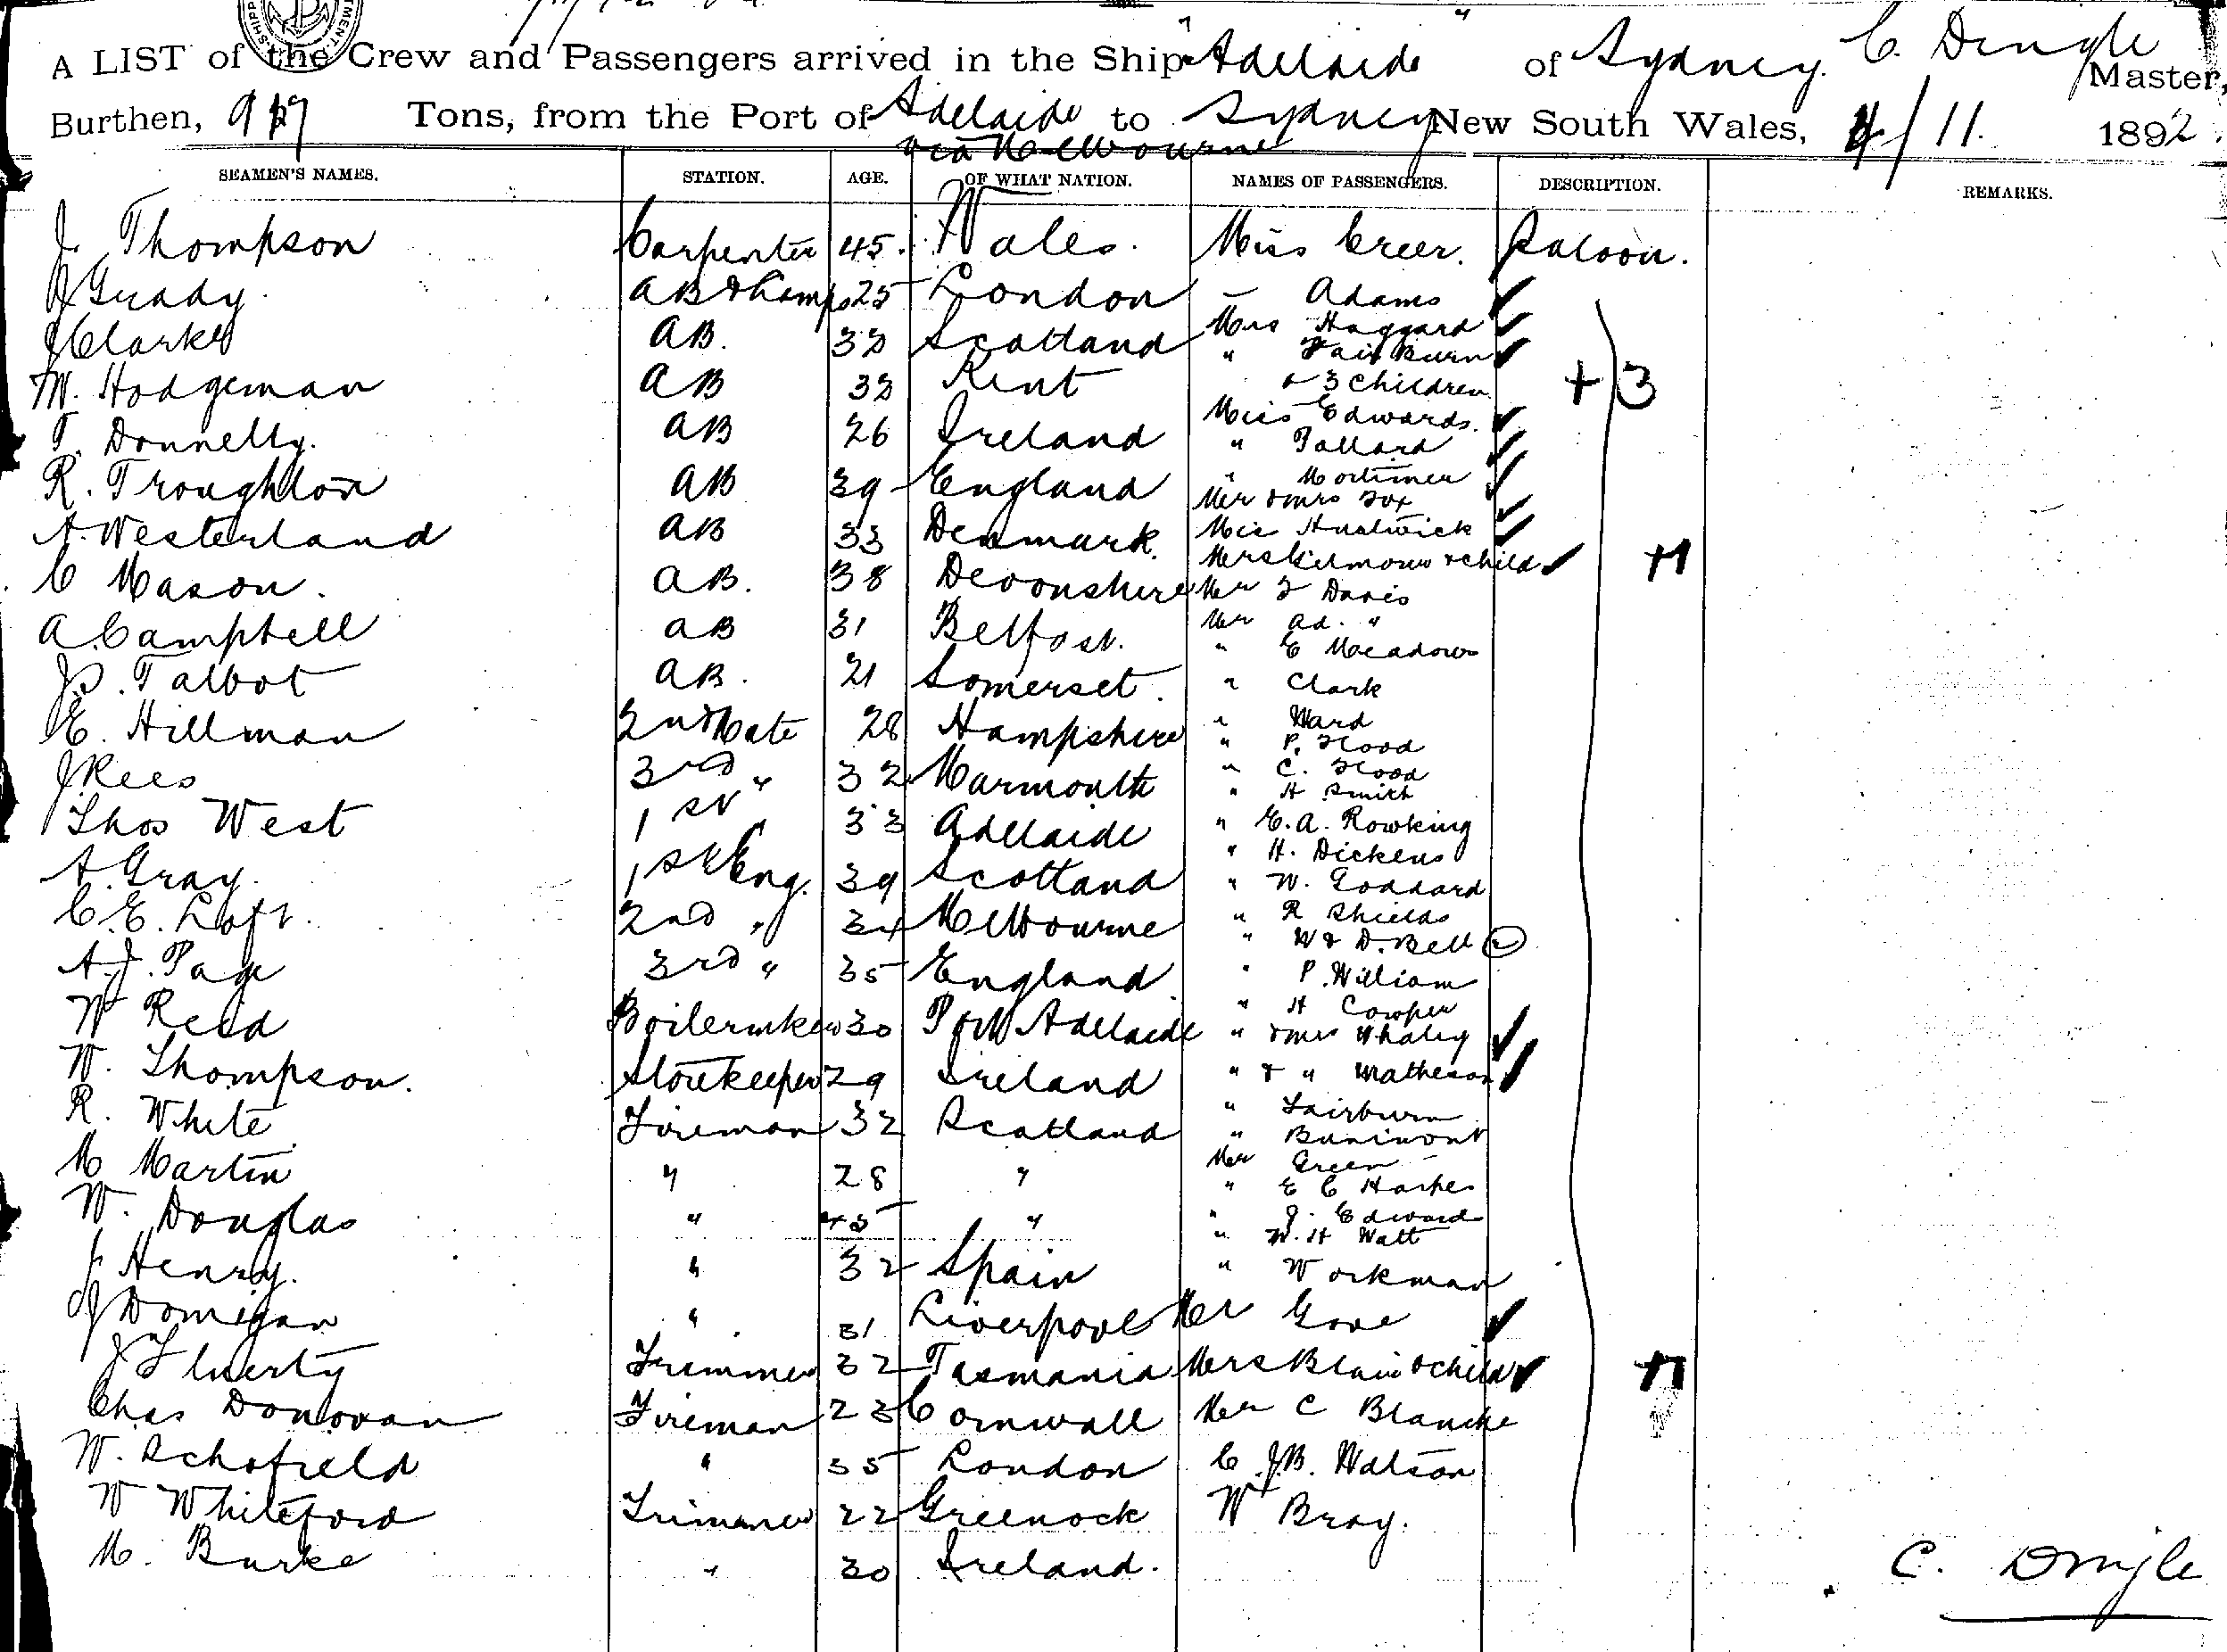 A LIST of the Crew and Passengers arrived in the Ship "Adelaide" of Sydney. C. Dingle Master,
Burthen, Tons, from the Port of Adelaide to Sydney New South Wales, 4/11. 1892.
via Melbourne
SEAMEN'S NAMES. STATION. AGE. OF WHAT NATION. NAMES OF PASSENGERS. DESCRIPTION. REMARKS.
J. Thompson Carpenter 45. Wales. Miss Creer. Saloon.
J Grady. AB & Lamps 25 London – Adams
J Clarke AB. 33 Scotland Mrs Haggard
" Fairburn
M. Hodgeman AB 33 Kent & 3 children + 3
T. Donnelly. AB 26 Ireland Miss Edwards.
" Pollard
R. Troughton AB 39 England " Mortimer
Mr & Mrs Fox
A. Westerland AB 33 Denmark. Mis
Mrs Gilmour & child +1
C Mason. AB. 38 Devonshire Mr F Davis
A. Campbell AB 31 Belfast. Mr Ad. "
" E Meadows
J.D. Talbot AB. 21 Somerset. " Clark
E. Hillman 2nd Mate 28 Hampshire " Ward
" P. Flood
J Rees 3rd " 32 " C. Flood
" H Smith
Thos West 1st " 33 Adelaide " E.A. Rowking
" H. Dickens
A. Gray. 1st Eng. 39 Scotland " W. Goddard
C. E. Loft. 2nd " 34 Melbourne " R Shields
" W & D. Bell 2
A. J. Page 3rd " 35 England " P. William
" H Cowper
W Reid Boilermker 30 Port Adelaide " & Mrs Whaley
W. Thompson. Storekeeper 29 Ireland " & " Matheson
R. White Fireman 32 Scotland " Fairburn
"
M Martin " 28 " Mr Green
" E C Harper
W. Douglas " 45 " " J. Edward
" W. H Watt
J Henry. " 32 Spain " Workman
J Domigan " 31 Liverpool Mr Gove
J Fluerty Trimmer 32 Tasmania Mrs Blain & child +1
Chas Donovan Fireman 23 Cornwall Mr C Blanche
W. Schofield " 35 London C. J.B. Watson
W Whiteford Trimmer 22 Greenock W Bray.
M. Burke " 30 Ireland.
C. Dingle